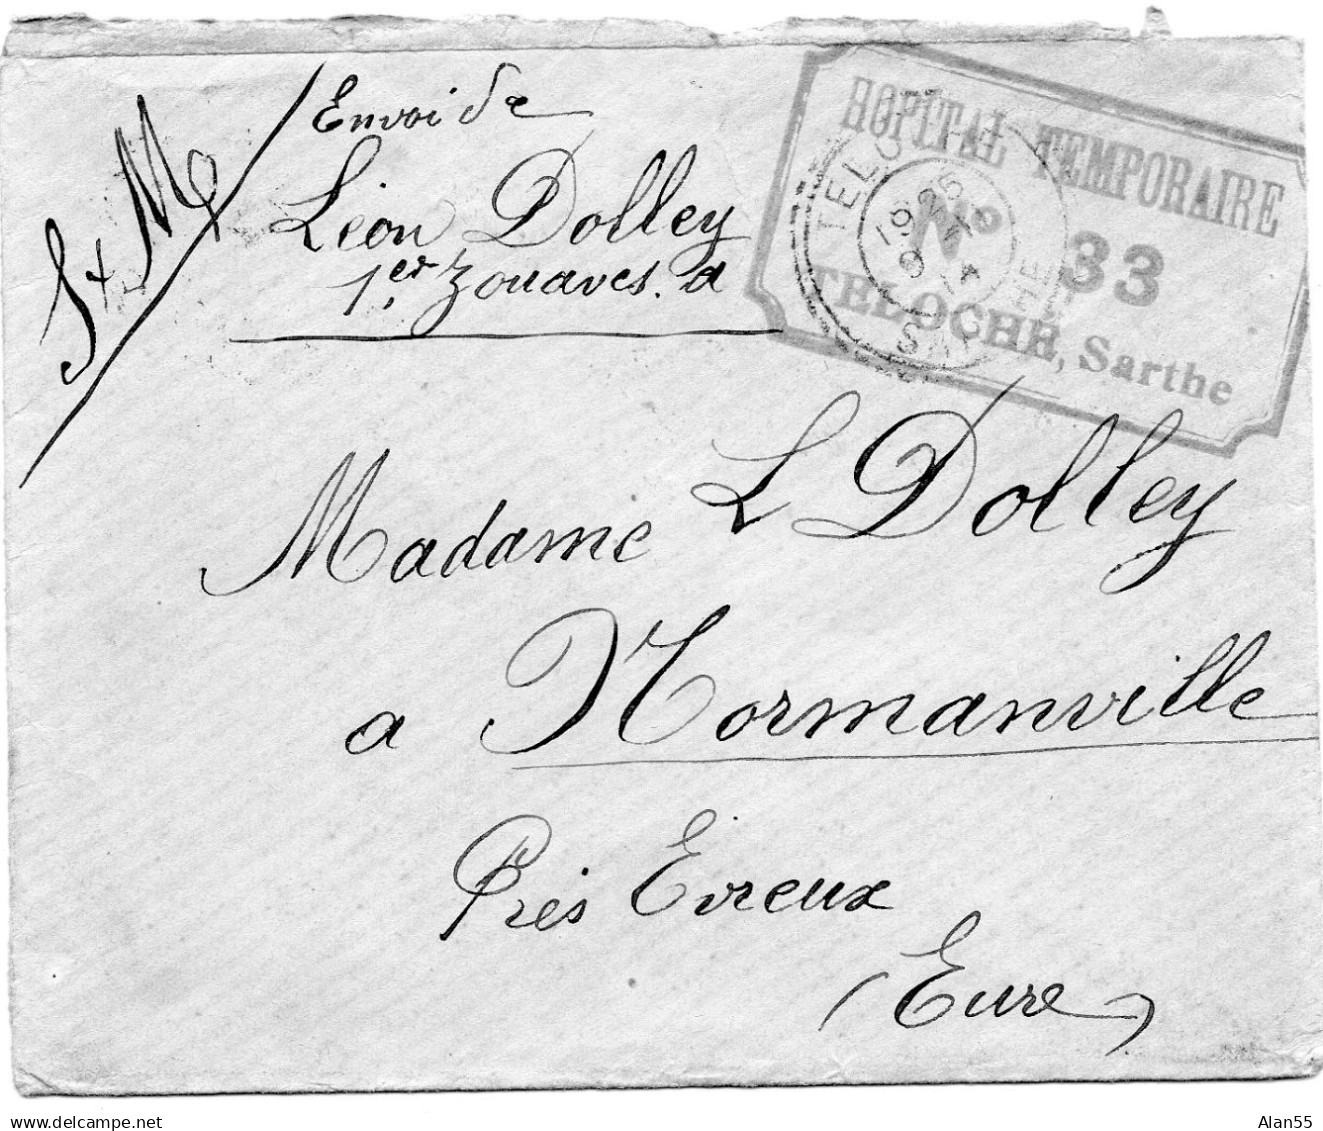 S+M
Envoi de
Léon Dolley
1er Zouaves. a
HOPITAL TEMPORAIRE
No 33
TELOCHE, Sarthe
TELOCHE
SARTHE
Madame L Dolley
a Normanville
Près Evreux
(Eure)
www.delcampe.net
Alan55